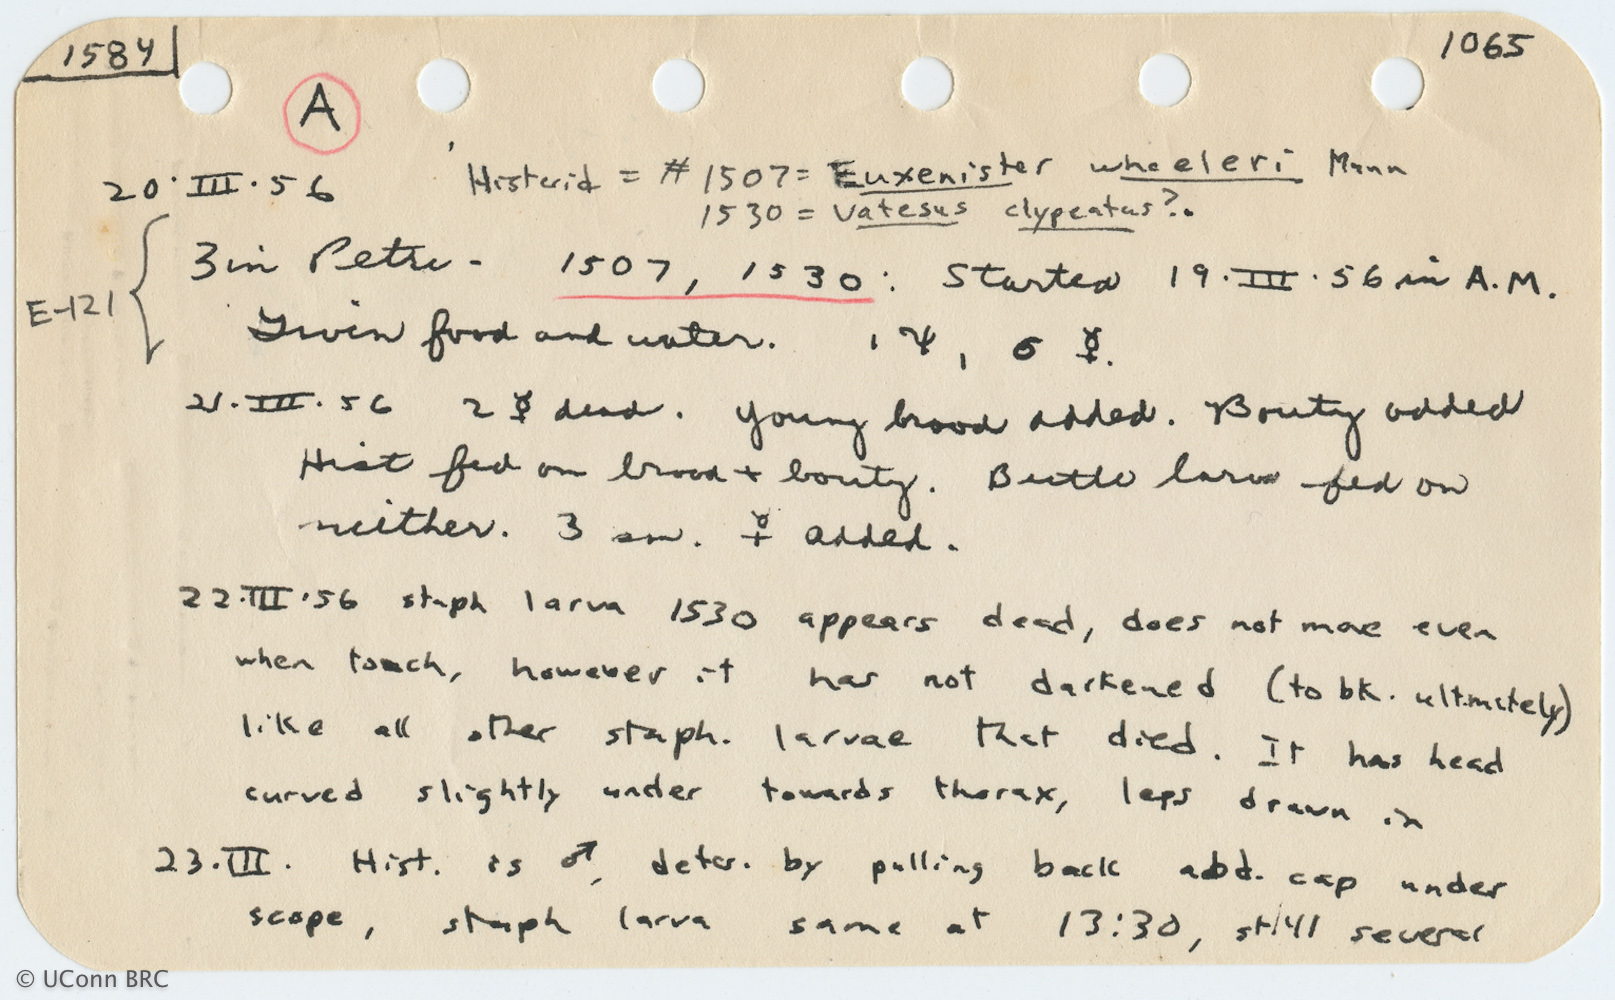 1584
1065
A
20·III·56 Histerid = # 1507 = Euxenister wheeleri Mann
1530 = Vatesus clypeatus?.
E-121
3 in Petri - 1507, 1530: Started 19·III·56 in A.M.
Given food and water. 1 ♃, 6 ☿.
21·III·56 2 ☿ dead. Young brood added. Bouty added
Hist fed on brood + bouty. Beetle larva fed on
neither. 3 sm. ☿ added.
22·III·56 staph larva 1530 appears dead, does not move even
when touch, however it has not darkened (to bk. ultimately)
like all other staph. larvae that died. It has head
curved slightly under towards thorax, legs drawn in
23·III. Hist. is ♂, deter. by pulling back abd. cap under
scope, staph larva same at 13:30, still several
© UConn BRC